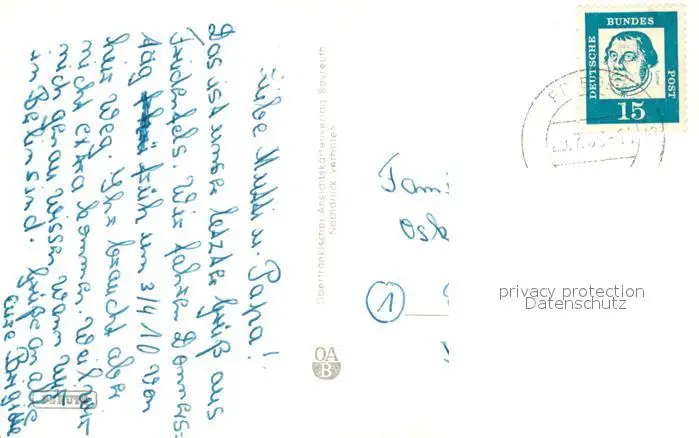 Liebe Mutti u. Papa!
Das ist unser letzter Gruß aus
Friedenfels. Wir fahren Donners=
tag früh um 3/4 10 von
hier weg. Ihr braucht aber
nicht extra kommen. Weil wir
nicht genau wissen wann wir
in Berlin sind. Grüße an alle
eure Brigitte
Oberfränkischer Ansichtskartenverlag Bayreuth
Nachdruck verboten
OA
B
DEUTSCHE
BUNDES
POST
15
Fami
Osk
1
privacy protection
Datenschutz